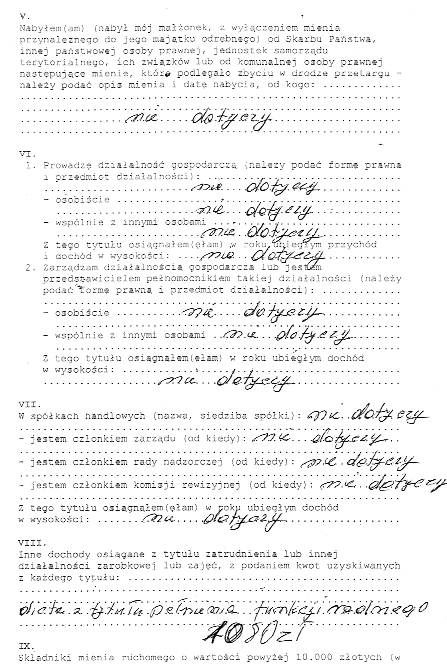 V.
Nabyłem(am) (nabył mój małżonek, z wyłączeniem mienia
przynależnego do jego majątku odrębnego) od Skarbu Państwa,
innej państwowej osoby prawnej, jednostek samorządu
terytorialnego, ich związków lub od komunalnej osoby prawnej
następujące mienie, które podlegało zbyciu w drodze przetargu -
należy podać opis mienia i datę nabycia, od kogo: ............
nie dotyczy
VI.
1. Prowadzę działalność gospodarczą (należy podać formę prawną
i przedmiot działalności): ............
nie dotyczy
- osobiście ............
nie dotyczy
- wspólnie z innymi osobami ............
nie dotyczy
Z tego tytułu osiągnąłem(ęłam) w roku ubiegłym przychód
i dochód w wysokości: ... nie dotyczy
2. Zarządzam działalnością gospodarczą lub jestem
przedstawicielem pełnomocnikiem takiej działalności (należy
podać formę prawną i przedmiot działalności): ............
- osobiście ... nie dotyczy
- wspólnie z innymi osobami ... nie dotyczy
Z tego tytułu osiągnąłem(ęłam) w roku ubiegłym dochód
w wysokości: ............
nie dotyczy
VII.
W spółkach handlowych (nazwa, siedziba spółki): nie dotyczy
- jestem członkiem zarządu (od kiedy): nie dotyczy
- jestem członkiem rady nadzorczej (od kiedy): nie dotyczy
- jestem członkiem komisji rewizyjnej (od kiedy): nie dotyczy
Z tego tytułu osiągnąłem(ęłam) w roku ubiegłym dochód
w wysokości: ... nie dotyczy
VIII.
Inne dochody osiągane z tytułu zatrudnienia lub innej
działalności zarobkowej lub zajęć, z podaniem kwot uzyskiwanych
z każdego tytułu: ............
dieta z tytułu pełnienia funkcji radnego
1080 zł
IX.
Składniki mienia ruchomego o wartości powyżej 10.000 złotych (w